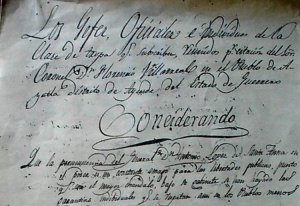 Los Gefes, Oficiales e individuos de la
Clase de tropa q. subscriben, reunidos p. citacion del Señor
Coronel D. Florencio Villarreal en el Pueblo de A-
yutla distrito de Ayutla, del Estado de Guerrero
Considerando
Que la permanencia del General D. Antonio Lopez de Santa Anna en
el poder es un constante amago para las libertades publicas, puesto
q. con el mayor escandalo, bajo su gobierno se han hollado las
garantias individuales q. se respetan aun en los Paises menos